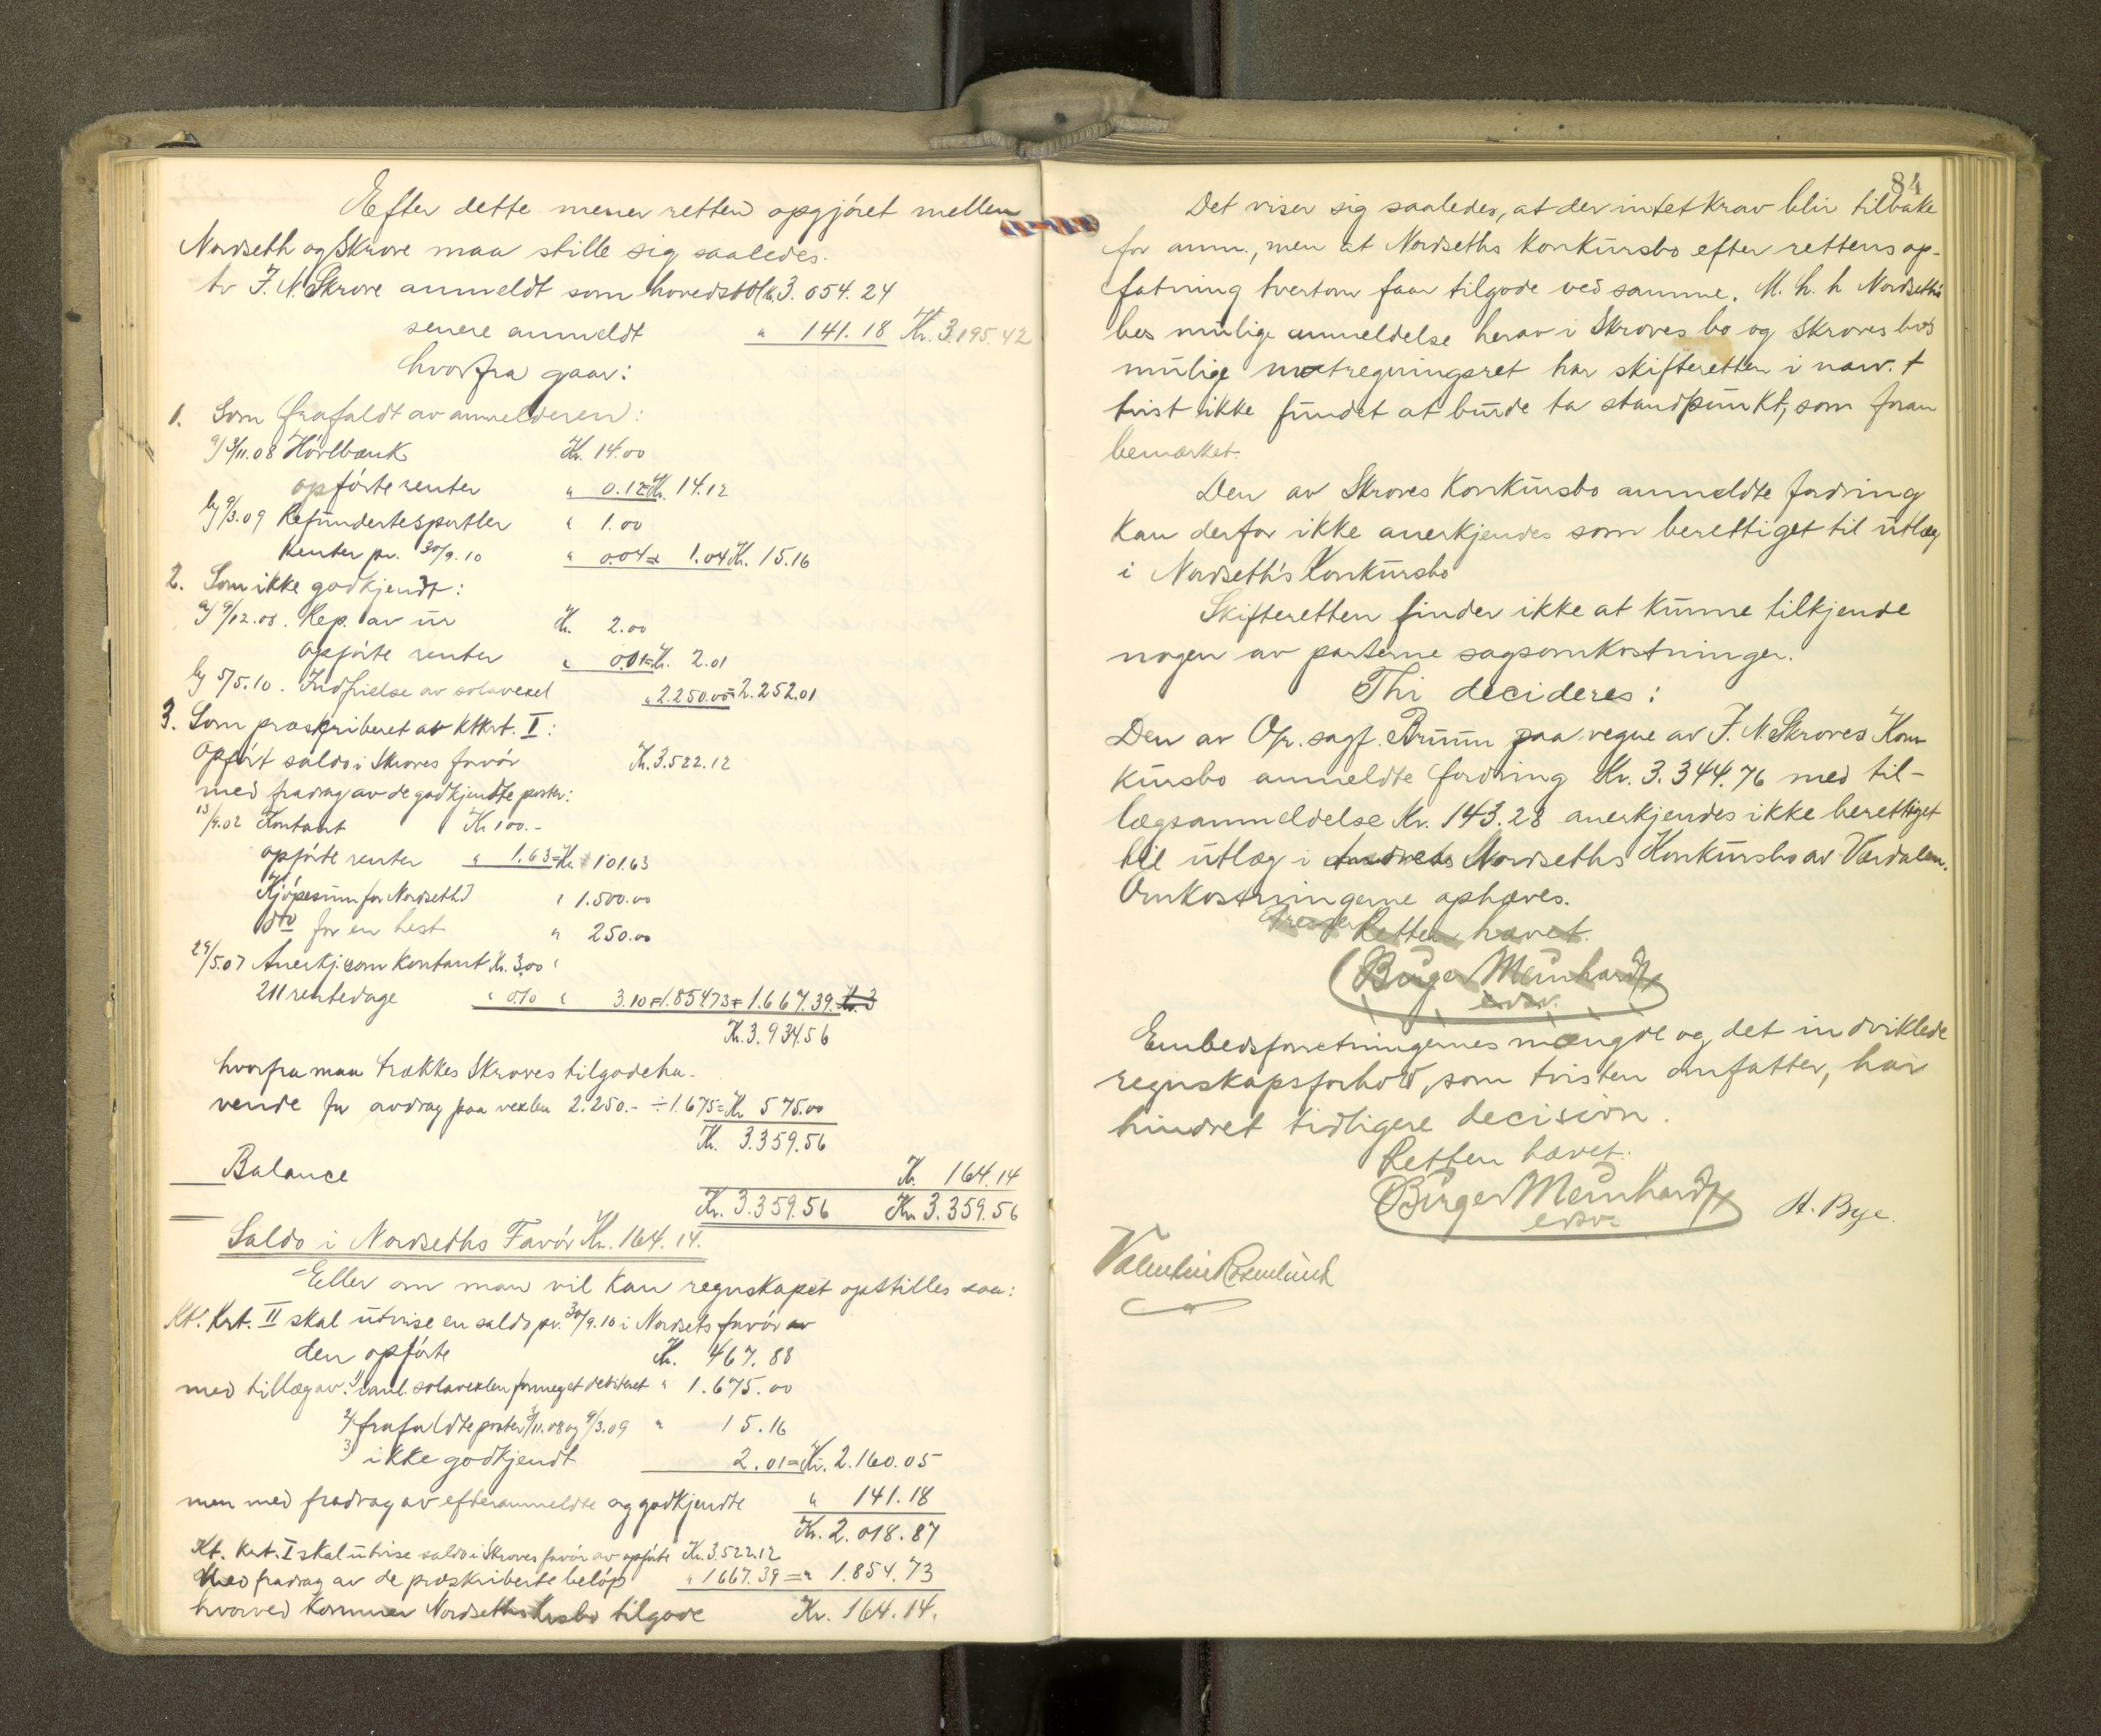 Efter dette mener retten opgjöret mellem
Nordseth og Skrove maa stille sig saaledes.
Av J. N. Skrove anmeldt som hovedstol Kr. 3.054.24
senere anmeldt " 141.18 Kr. 3.195.42
hvorfra gaar:
1. Som frafaldt av anmelderen:
a) 3/11.08 Hörlbænk Kr. 14.00
opförte renter " 0.12 = Kr. 14.12
b) 9/3.09 Refunderte sportler " 1.00
Renter pr. 30/9.10 " 0.04 = 1.04 Kr. 15.16
2. Som ikke godkjendt:
a) 9/12.08. Rep. av ur Kr. 2.00
Opförte renter " 0.01 = Kr. 2.01
b) 5/5.10. Indfrielse av solavexel " 2.250.00 = 2.252.01
3. Som præskriberet av Ktkrt. I:
Opfört saldo i Skroves favör Kr. 3.522.12
med fradrag av de godkjendte poster:
13/9.02 Kontant Kr. 100.-
opförte renter " 1.63 = Kr. 101.63
Kjöpesum for Nordseth " 1.500.00
dto for en hest " 250.00
29/5.07 Anerkj. som kontant Kr. 3.00
211 rentedage " 0.10 " 3.10 = 1.854.73 = 1.667.39. Kr. 3
Kr. 3.934.56
hvorfra maa trækkes Skroves tilgodeha-
vende for avdrag paa vexlen 2.250.- ÷ 1.675 = Kr. 575.00
Kr. 3.359.56
Balance Kr. 164.14
Kr. 3.359.56 Kr. 3.359.56
Saldo i Nordseths Favör Kr. 164.14.
Eller om man vil kan regnskapet opstilles saa:
Kt. Krt. II skal utvise en saldo pr. 30/9.10 i Nordsets favör av
den opförte Kr. 467.88
med tillæg av: 1) anl. solavexlen formeget debiteret " 1.675.00
2) frafaldte poster 3/11.08 og 9/3.09 " 15.16
3) ikke godkjendt 2.01 = Kr. 2.160.05
men med fradrag av efteranmeldte og godkjendte " 141.18
Kr. 2.018.87
Kt. Krt. I skal utvise saldo i Skroves favör av opförte Kr. 3.522.12
Med fradrag av de præskriberte belöp " 1667.39 = " 1.854.73
hvorved kommer Nordseths krsbo tilgode Kr. 164.14.
84
Det viser sig saaledes, at der intet krav blir tilbake
for anm., men at Nordseths konkursbo efter rettens op-
fatning tvertom faar tilgode ved samme. M. h. h Nordseth's
bos mulige anmeldelse herav i Skroves bo og Skroves bo's
mulige motregningsret har skifteretten i nærv. t
tvist ikke fundet at burde ta standpunkt, som foran
bemærket.
Den av Skroves konkursbo anmeldte fordring
kan derfor ikke anerkjendes som berettiget til utlæg
i Nordseth's konkursbo
Skifteretten finder ikke at kunne tilkjende
nogen av parterne sagsomkostninger.
Thi decideres:
Den av O.r.sagf. Bruun paa vegne av J. N. Skroves Kon-
kursbo anmeldte fordring Kr. 3.344.76 med til-
lægsanmeldelse Kr. 143.28 anerkjendes ikke berettiget
til utlæg i Andreas Nordseths Konkursbo av Værdalen.
Omkostningerne ophæves.
Retten hævet.
Birger Meinhardt
edsv.
Embedsforretningernes mængde og det indviklede
regnskapsforhold, som tvisten omfatter, har
hindret tidligere decision.
Retten hævet.
Birger Meinhardt
edsv.
H. Bye.
Valentin Rosenlund